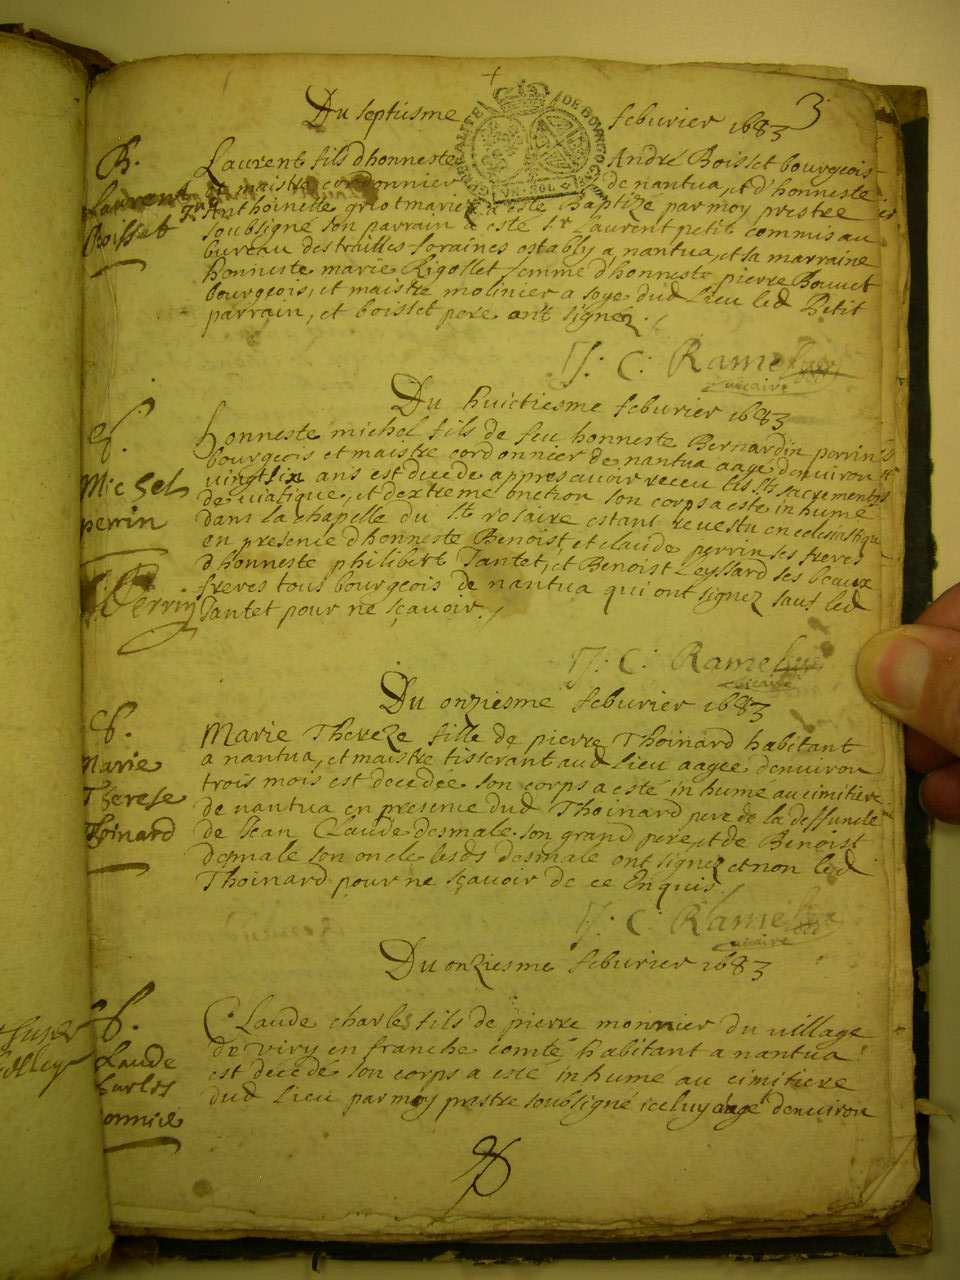 3
Du septiesme feburier 1683
GENERALITE DE BOURGOGNE
UN. SOL.
B.
Laurent
Boisset
Laurent fils dhonneste André Boisset bourgeois
et maistre cordonnier de nantua, et d'honneste
Anthoinette griot mariez a esté baptizé par moy prestre
soubsigné son parrain a esté Sr Laurent petit commis au
bureau des traittes foraines estably a nantua, et sa marraine
honneste marie Rigollet femme d'honneste pierre Bouvet
bourgeois, et maistre molinier a soye dud lieu led Petit
parrain, et boisset pere ont signez.
J. C. Ramel
vicaire
Du huictiesme feburier 1683
Michel
perrin
honneste michel fils de feu honneste Bernardin perrin
bourgeois et maistre cordonnier de nantua aagé denviron
vingtsix ans est decede appres avoir receu les Sts sacrements
de viatique, et dextreme onction son corps a este inhumé
dans la chapelle du St rosaire estant revestu en eclesiastique
en presence dhonneste Benoist, et claude perrin ses freres
dhonneste philibert Jantet, et Benoist Leyssard ses beaux
freres tous bourgeois de nantua qui ont signez sauf led
Jantet pour ne sçavoir.
Perrin
J. C. Ramel
vicaire
Du onziesme feburier 1683
Marie
Therese
Thoinard
Marie Thereze fille de pierre Thoinard habitant
a nantua, et maistre tisserant aud lieu aagee denviron
trois mois est decedée son corps a esté inhume au cimitiere
de nantua en presence dud Thoinard pere de la deffuncte
de Jean Claude desmale son grand pere, et de Benoist
desmale son oncle lesds desmale ont signez et non led
Thoinard pour ne sçavoir de ce Enquis.
J. C. Ramel
vicaire
Du onziesme feburier 1683
laude
harles
onnier
Claude charles fils de pierre monnier du village
de viry en franche comté habitant a nantua
est decede son corps a esté inhumé au cimitiere
dud lieu par moy prestre soubsigné iceluy aagé denviron